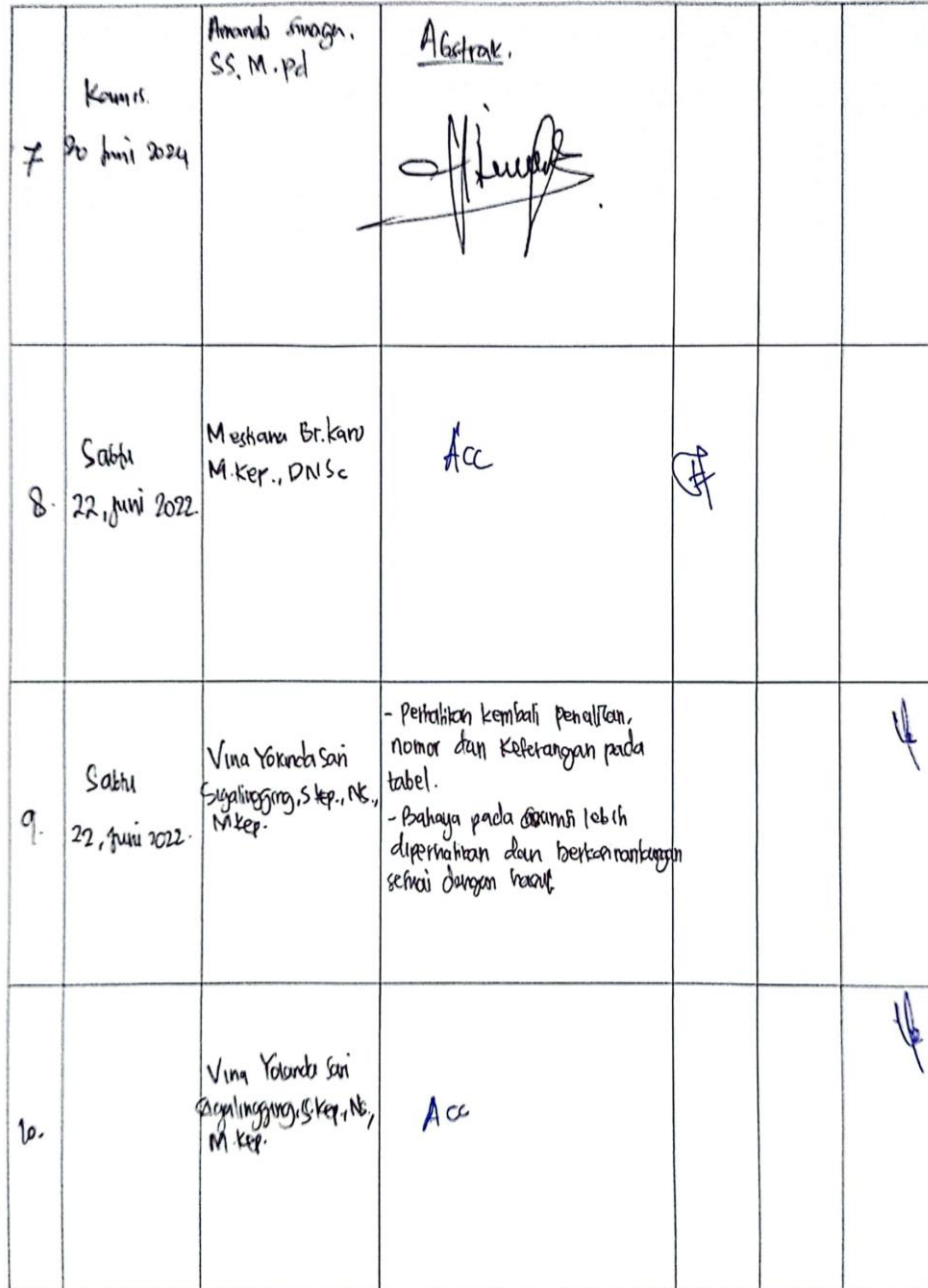 7
Kamis.
20 Juni 2024
Amando Sinaga.
SS. M.pd
Abstrak.
8.
Sabtu
22, Juni 2022.
Mestiana Br.Karo
M.Kep., DNSc
Acc
9.
Sabtu
22, Juni 2022.
Vina Yolanda Sari
Sigalingging, S.Kep., Ns.,
M.Kep.
- Perhatikan kembali penulisan,
nomor dan Keterangan pada
tabel.
- Bahaya pada asumsi lebih
diperhatikan dan
sesuai dengan
10.
Vina Yolanda Sari
Sigalingging, S.Kep., Ns.,
M.Kep.
Acc